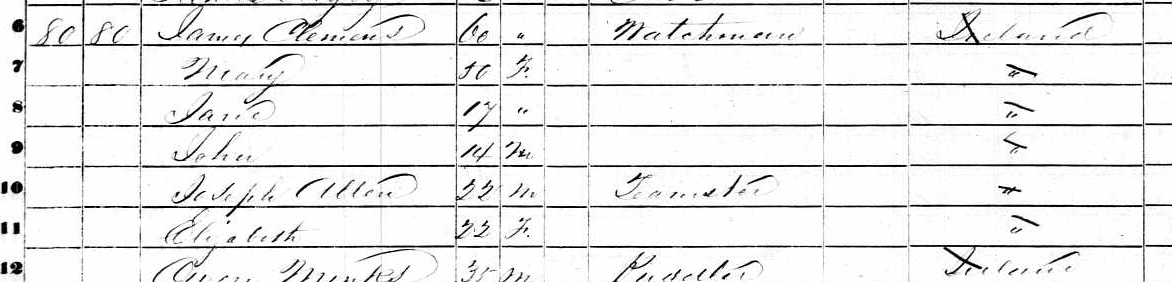 6 80 80 James Clemens 60 " Watchman Ireland
7 Mary 50 F. "
8 Jane 17 " "
9 John 14 M "
10 Joseph Allen 22 M Teamster "
11 Elizabeth 22 F. "
12 Owen Minks 35 M Puddler Ireland